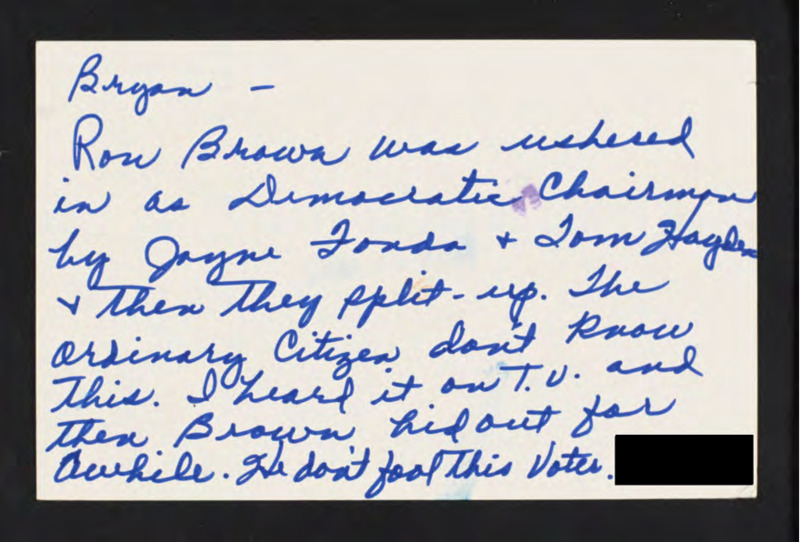 Bryan –
Ron Brown was ushered
in as Democratic Chairman
by Jayne Fonda & Tom Hayden
& then they split-up. The
ordinary Citizen don't know
this. I heard it on T.V. and
then Brown hid out for
awhile. He don't fool this Voter.